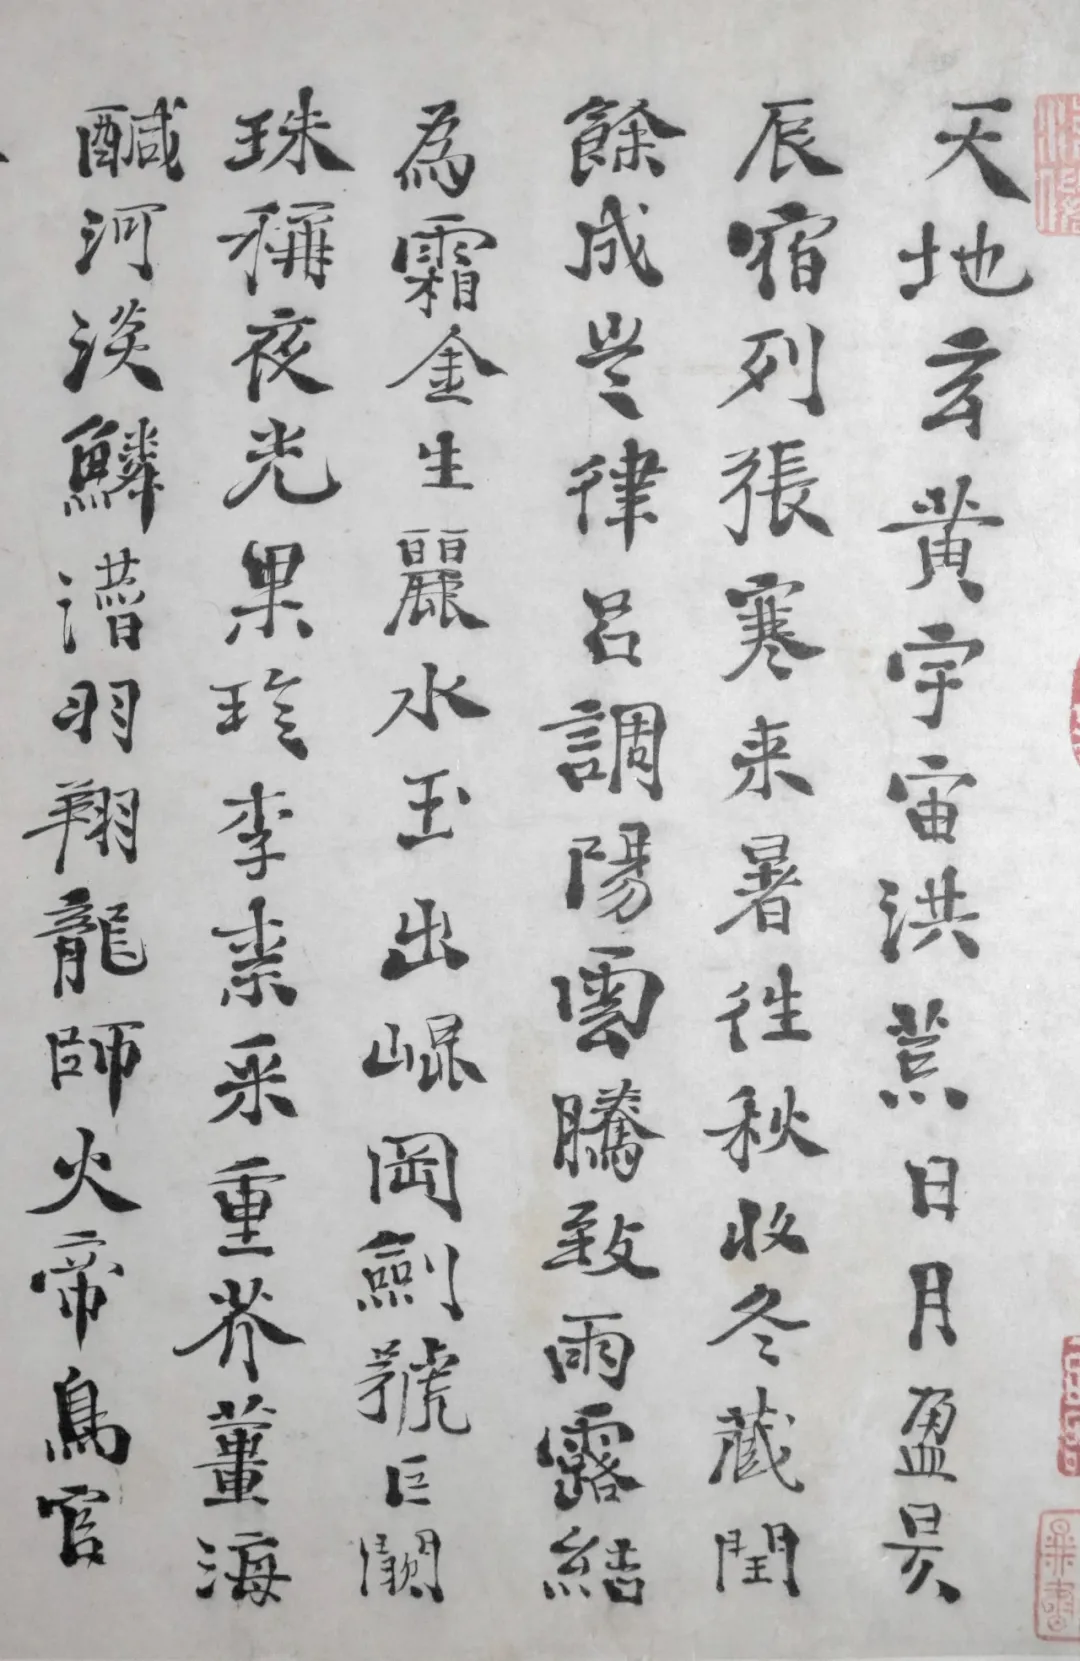 天地玄黃宇宙洪荒日月盈昃
辰宿列張寒来暑往秋收冬藏閏
餘成歲律呂調陽雲騰致雨露結
為霜金生麗水玉出崐岡劍號巨闕
珠稱夜光果珍李柰菜重芥薑海
鹹河淡鱗潛羽翔龍師火帝鳥官